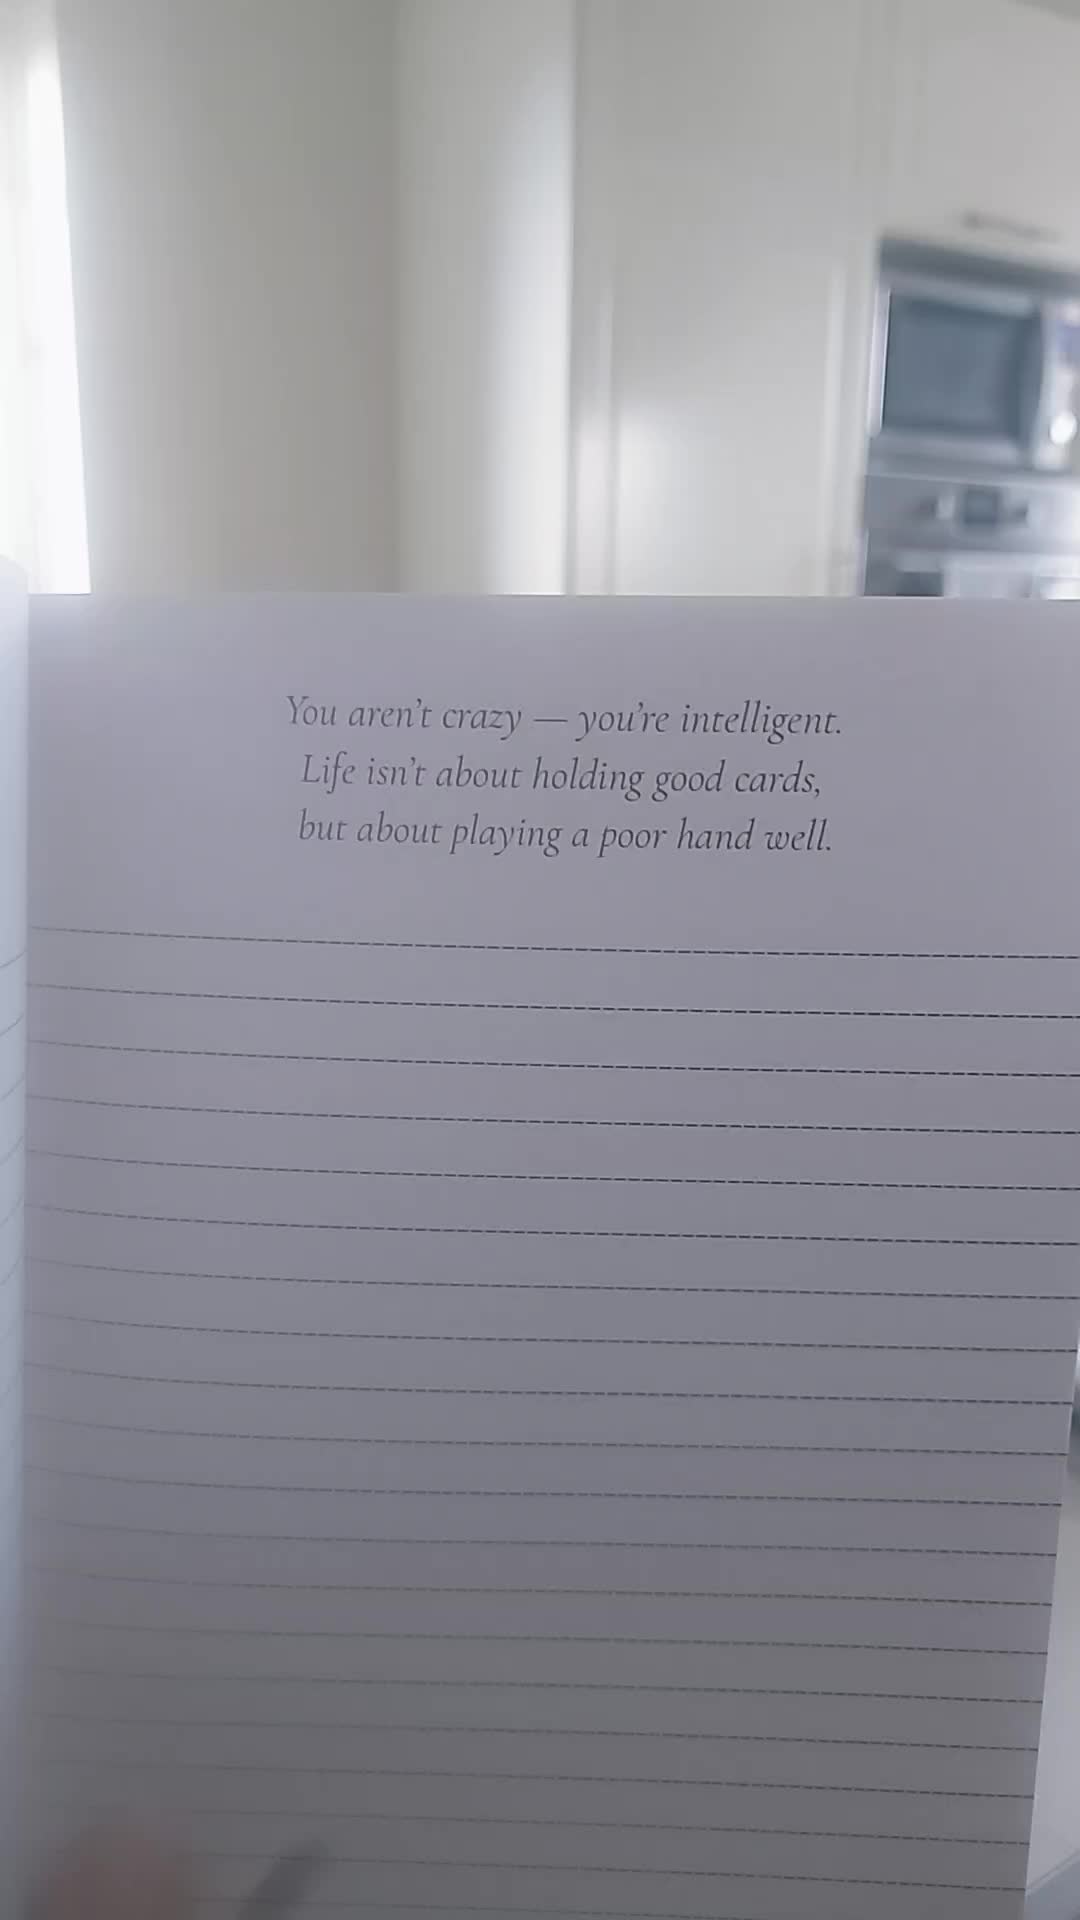 You aren’t crazy — you’re intelligent.
Life isn’t about holding good cards,
but about playing a poor hand well.